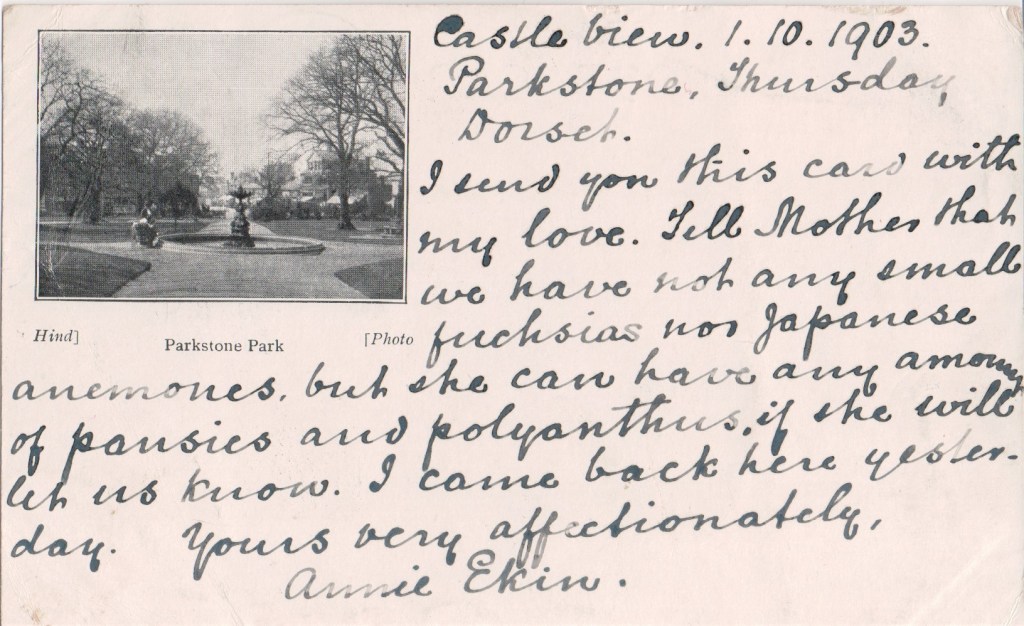 Castle View. 1. 10. 1903.
Parkstone, Thursday,
Dorset.
I send you this card with
my love. Tell Mother that
we have not any small
fuchsias nor Japanese
Hind] Parkstone Park [Photo
anemones, but she can have any amount
of pansies and polyanthus, if she will
let us know. I came back here yester-
day. Yours very affectionately,
Annie Ekin.